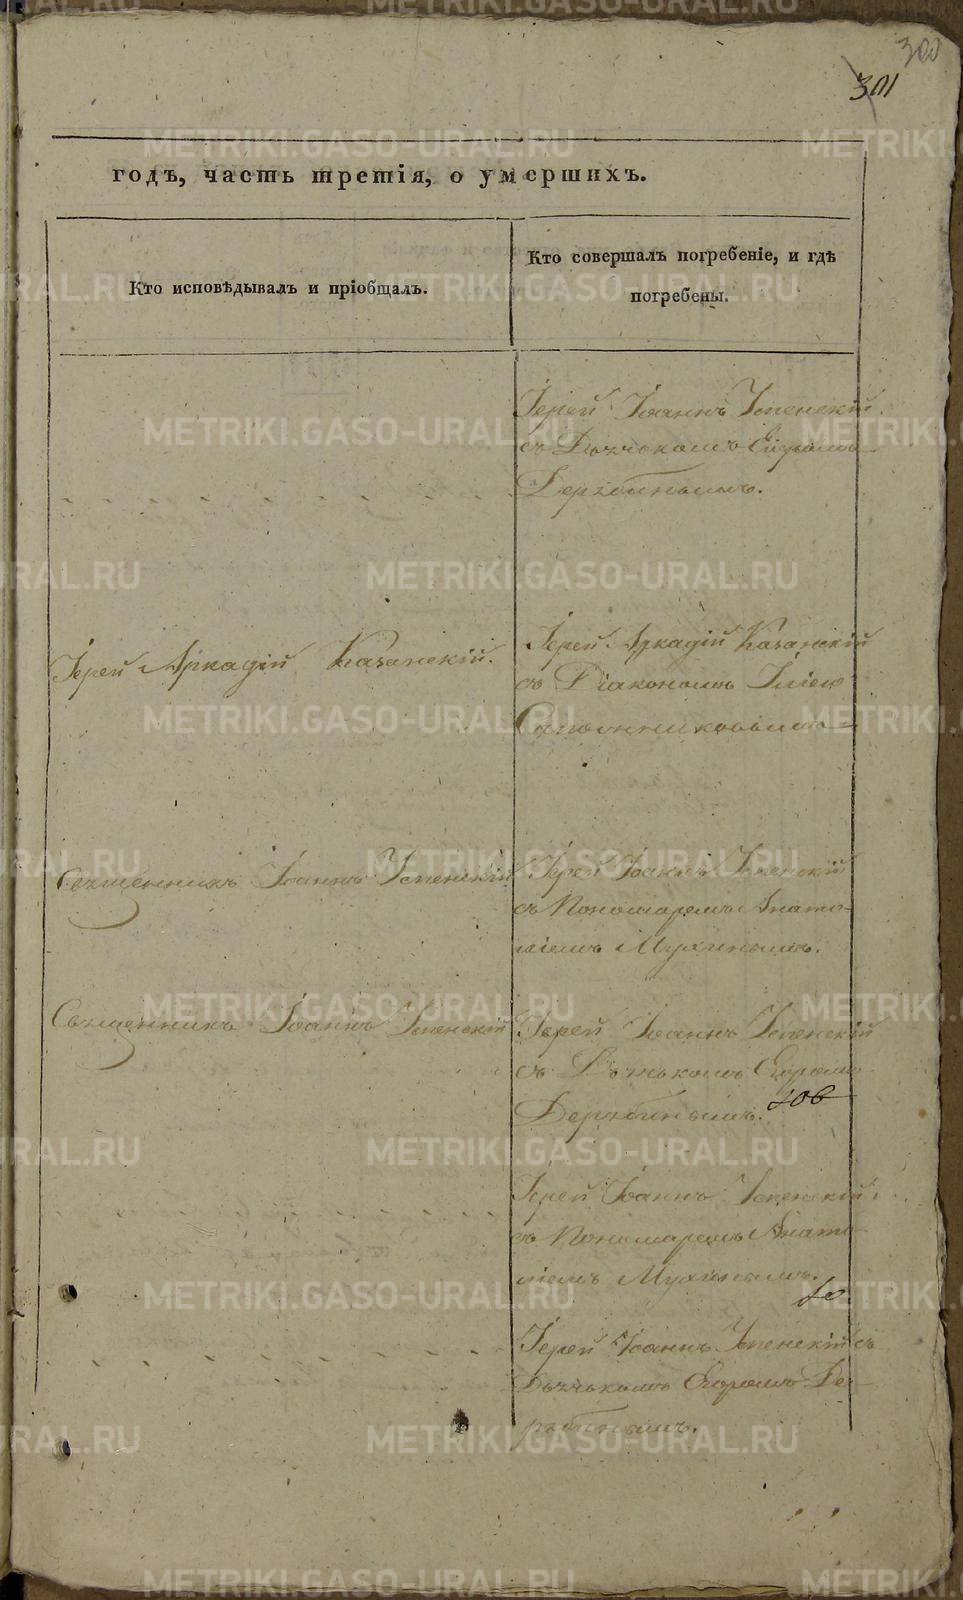 300
301
годъ, часть третія, о умершихъ.
Кто исповѣдывалъ и пріобщалъ.
Кто совершалъ погребеніе, и гдѣ
погребены.
Іерей Іоаннъ Успенскій
съ Дьячкомъ Егоромъ
Дерябинымъ.
Іерей Аркадій Казанскій.
Іерей Аркадій Казанскій
съ Діакономъ Іліею
Сапожниковымъ
Священникъ Іоаннъ Успенскій
Іерей Іоаннъ Успенскій
съ Пономаремъ Анато-
ліемъ Мухинымъ.
Священникъ Іоаннъ Успенскій
Іерей Іоаннъ Успенскій
съ Дьячкомъ Егоромъ
Дерябинымъ.
Іерей Іоаннъ Успенскій
съ Пономаремъ Анато-
ліемъ Мухинымъ.
Іерей Іоаннъ Успенскій съ
Дьячкомъ Егоромъ Де-
рябинымъ.
METRIKI.GASO-URAL.RU